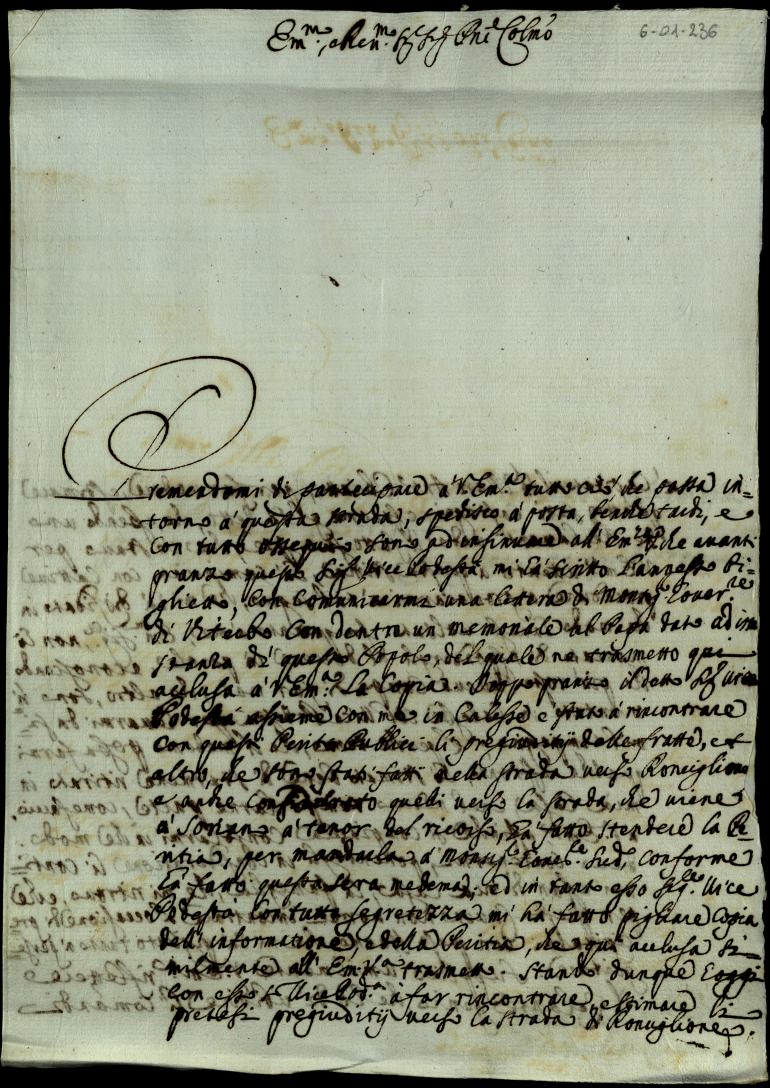 Em.mo, e Ren.mo Sig.r Sig.r Pne Colmo
6-01-236
Premendomi di partecipare à V. Em.a tutto ciò che passa in=
torno à questa strada, spedisco à posta, benche tardi, e
con tutto ossequio sono ad insinuare all' Em. V. che avanti
pranzo questo Sig.r Vice Podestà, mi hà scritto l'annesso Bi=
glietto, con comunicarmi una lettera di Monsig.r Gover.re
di Viterbo con dentro un memoriale al Papa dato ad in
stanza di questo Popolo, del quale ne trasmetto qui
acclusa à V. Em.a la Copia. Doppo pranzo il detto Sig.r Vice
Podestà assieme con me in Calesse è stato à rincontrare
con questi Periti Publici li pregiuditij delle fratte, et
altro, che sono stati fatti nella strada verso Ronciglione
e anche quelli verso la strada, che viene
à Soriano à tenor del ricorso, hà fatto stendere la Pe=
ritia, per mandarla à Monsig.r Gover.re Sud.o conforme
hà fatto questa sera medema, ed in tanto esso Sig.re Vice
Podestà con tutta segretezza mi hà fatto pigliare Copia
dell' informatione, e della Peritia, che quì acclusa si=
milmente all' Em. V.a trasmetto. Stando dunque hoggi
con esso S.r Vice Pod.a à far rincontrare, e stimare li
pretesi pregiuditij verso la strada di Ronciglione,